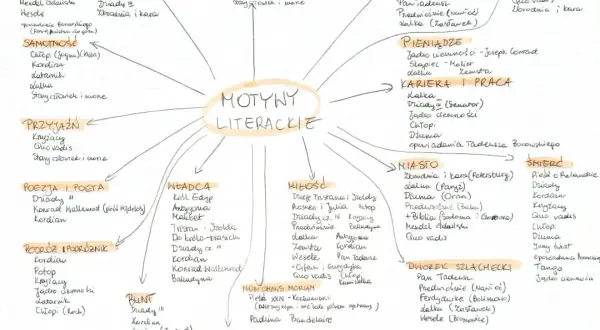 Mendel Gdański
Hesel
Dziady III
Zbrodnia i kara
Stary człowiek i morze
Pan Tadeusz
Przedwiośnie (Nawłoć)
Lalka (Zasławek)
Quo vadis
Zbrodnia i kara
SAMOTNOŚĆ
Chłopi (Jagna) (Kuba)
Kordian
Latarnik
Lalka
Stary człowiek i morze
PRZYJAŹŃ
Krzyżacy
Quo vadis
Stary człowiek i morze
POEZJA I POETA
Dziady III
Konrad Wallenrod (pieśń Wajdeloty)
Kordian
PODRÓŻ I PODRÓŻNIK
Kordian
Potop
Krzyżacy
Jądro ciemności
Latarnik
Chłopi (Roch)
MOTYWY
LITERACKIE
WŁADCA
Król Edyp
Antygona
Makbet
Tristan i Izolda
Do króla
Dziady cz. III
Kordian
Konrad Wallenrod
Balladyna
BUNT
Dziady III
Kordian
NON OMNIS MORIAR
Pieśń XXIV - Kochanowski
Padlina Baudelaire
MIŁOŚĆ
Dzieje Tristana i Izoldy
Romeo i Julia
Chłopi
Dziady cz. IV
Krzyżacy
Przedwiośnie
Balladyna
Lalka
Antygona
Zemsta
Kordian
Wesele
Pan Tadeusz
Orfeusz i Eurydyka
Quo vadis
PIENIĄDZE
Jądro ciemności - Joseph Conrad
Skąpiec - Molier
Lalka
Zemsta
KARIERA I PRACA
Lalka
Dziady III (Senator)
Jądro ciemności
Chłopi
Dżuma
opowiadania Tadeusza Borowskiego
MIASTO
Zbrodnia i kara (Petersburg)
Lalka (Paryż)
Dżuma (Oran)
Przedwiośnie (Baku)
+ Biblia (Sodoma i Gomora)
Mendel Gdański
Quo vadis
DWOREK SZLACHECKI
Pan Tadeusz
Przedwiośnie (Nawłoć)
Ferdydurke (Bolimów)
Lalka (Zasławek)
Wesele (Bronowice)
ŚMIERĆ
Pieśń o Rolandzie
Dziady
Kordian
Krzyżacy
Quo vadis
Chłopi
Dżuma
Inny świat
opowiadania Borowskiego
Tango
Jądro ciemności